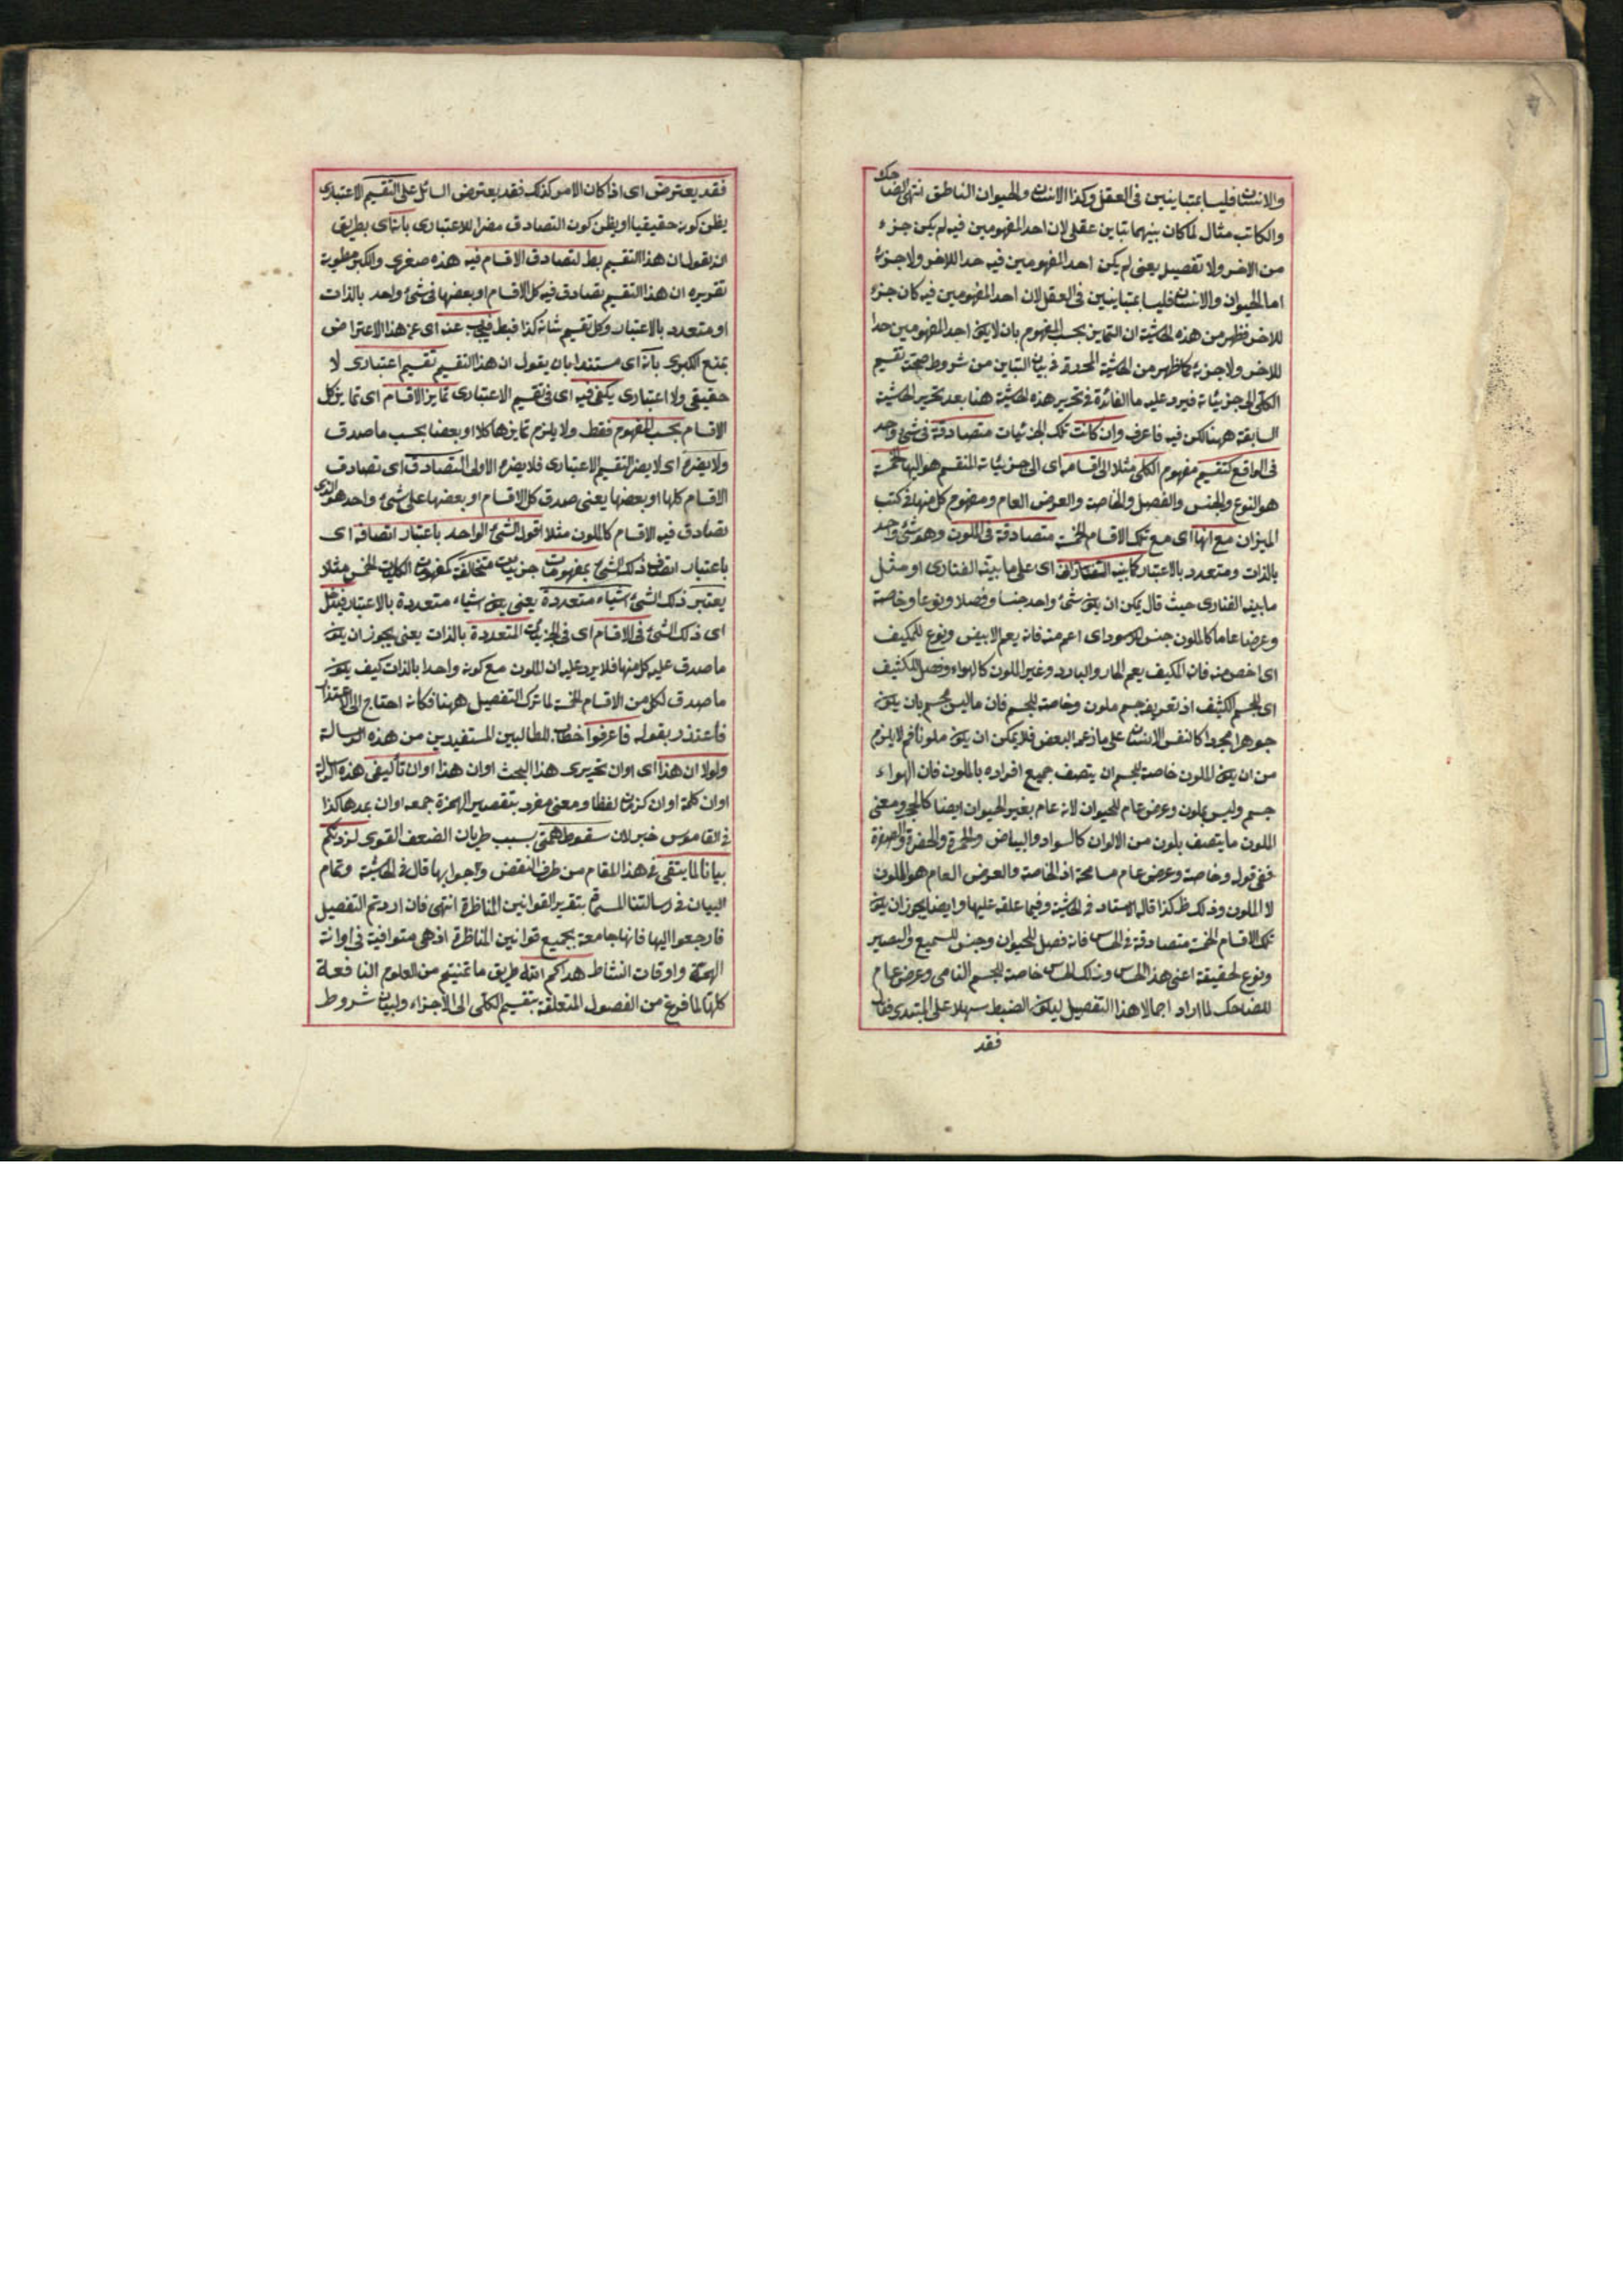 والانسان فليسا بمتباينين فى العقل وكذا الانسان والحيوان الناطق انتهى الضاحك
والكاتب مثال لما كان بينهما تباين عقلى لان احد المفهومين فيه لم يكن جزء
من الاخر ولا تفصيل يعنى لم يكن احد المفهومين فيه حدا للاخر ولا جزئه
اما الحيوان والانسان فليسا بمتباينين فى العقل لان احد المفهومين فيه كان جزء
للاخر فظهر من هذه الحاشية ان التماين بحسب المفهوم بان لا يكون احد المفهومين حدا
للاخر ولا جزئه كما ظهر من الحاشية المحررة فى بيان التباين من شروط صحت تقسيم
الكلى الى جزئياته فيرد عليه ما الفائدة فى تحرير هذه الحاشية هنا بعد تحرير الحاشية
السابقة ههنا لكن فيه فاعرف وان كانت تلك الجزئيات متصادقة فى شئ واحد
فى الواقع كتقسيم مفهوم الكلى مثلا الى اقسامه اى الى جزئياته المنقسم هو اليها الخمسة
هو النوع والجنس والفصل والخاصة والعرض العام ومفهوم كل منها فى كتب
الميزان مع انها اى مع تلك الاقسام الخمسة متصادقة فى الملون وهو شئ واحد
بالذات ومتعدد بالاعتبار كما بينه الفنارى اى على ما بينه الفنارى او مثل
ما بينه الفنارى حيث قال يمكن ان يكون شئ واحد جنسا وفصلا ونوعا وخاصة
وعرضا عاما كالملون جنس للاسود اى اعم منه فانه يعم الابيض ونوع للمكيف
اى اخص منه فان المكيف يعم الحار والبارد وغير الملون كالهواء وفصل للكثيف
اى للجسم الكثيف اذ تعريفه جسم ملون وخاصة للجسم فان ما ليس بجسم بان يكون
جوهرا مجردا كالنفس الانسان على ما زعم البعض فلا يمكن ان يكون ملونا فم لا يلزم
من ان يكون الملون خاصة للجسم ان يتصف جميع افراده بالملون فان الهواء
جسم وليس بملون وعرض عام للحيوان لانه عام بغير الحيوان ايضا كالحجر ومعنى
الملون ما يتصف بلون من الالوان كالسواد والبياض والحمرة والخضرة والصفرة
ففى قوله وخاصة وعرض عام مسامحة اذ الخاصة والعرض العام هو الملون
لا الملون وذلك ظ كذا قال الاستاد فى الحاشية وفيما علقه عليها وايضا يجوز ان يكون
تلك الاقسام الخمسة متصادقة فى الحساس فانه فصل للحيوان وجنس للسميع والبصير
ونوع لحقيقة اعنى هذا الحساس وذلك الحساس خاصة للجسم النامى وعرض عام
للضاحك لما اراد اجمالا هذا التفصيل ليكون الضبط سهلا على المبتدى فقال
فقد
فقد يعترض اى اذا كان الامر كذلك فقد يعترض السائل على التقسيم الاعتبارى
يظن كونه حقيقيا او يظن كون التصادق مضرا للاعتبارى بانه اى بطريق
ان يقول ان هذا التقسيم بط لتصادق الاقسام فيه هذه صغرى والكبرى مطوية
تقريره ان هذا التقسيم تصادق فيه كل الاقسام او بعضها فى شئ واحد بالذات
او متعدد بالاعتبار وكل تقسيم شانه كذا فبط فيجيب عنه اى عن هذا الاعتراض
بمنع الكبرى بانه اى مستندا بان يقول ان هذا التقسيم تقسيم اعتبارى لا
حقيقى ولا اعتبارى يكفى فيه اى فى تقسيم الاعتبارى تمايز الاقسام اى تمايز كل
الاقسام بحسب المفهوم فقط ولا يلزم تمايزها كلا او بعضا بحسب ما صدق
ولا يضره اى لا يضر التقسيم الاعتبارى فلا يضره الاولى التصادق اى تصادق
الاقسام كلها او بعضها يعنى صدق كل الاقسام او بعضها على شئ واحد هو الذى
تصادق فيه الاقسام كالملون مثلا اقول الشئ الواحد باعتبار اتصافه اى
باعتبار اتصاف ذلك الشئ بمفهومات جزئيات متخالفة كمفهومات الكليات الخمس مثلا
يعتبر ذلك الشئ اشياء متعددة يعنى يكون اشياء متعددة بالاعتبار
اى ذلك الشئ فى الاقسام اى فى الجزئيات المتعددة بالذات يعنى يجوز ان يكون
ما صدق عليه كل منها فلا يرد عليه ان الملون مع كونه واحدا بالذات كيف يكون
ما صدق لكل من الاقسام الخمسة لما ترك التفصيل ههنا فكانه احتاج الى الاعتذار
فاعتذر بقوله فاعرفوا خطاب للطالبين المستفيدين من هذه الرسالة
ولولا ان هذا اى اوان تحريرى هذا البحث اوان هذا اوان تأليفى هذه الرسالة
اوان كلمة اوان كزمان لفظا ومعنى مفرد بتقصير الهمزة جمعه اوان بمدها كذا
فى القاموس خبر لان سقوط همتى بسبب طريان الضعف القوى لزدتكم
بيانا لما يتقى فى هذا المقام من طرف النقض واجوابها قال فى الحاشية وتمام
البيان فى رسالتنا المسماة بتقرير القوانين المناظرة انتهى فان اردتم التفصيل
فارجعوا اليها فانها جامعة بجميع قوانين المناظرة اذ هى متوافية فى اوانة
الهمة واوقات انشاط هداكم الله طريق ما تمنيتم من العلوم النافعة
كلها لما فرغ من الفصول المتعلقة بتقسيم الكلى الى الاجزاء ولبيان شروط